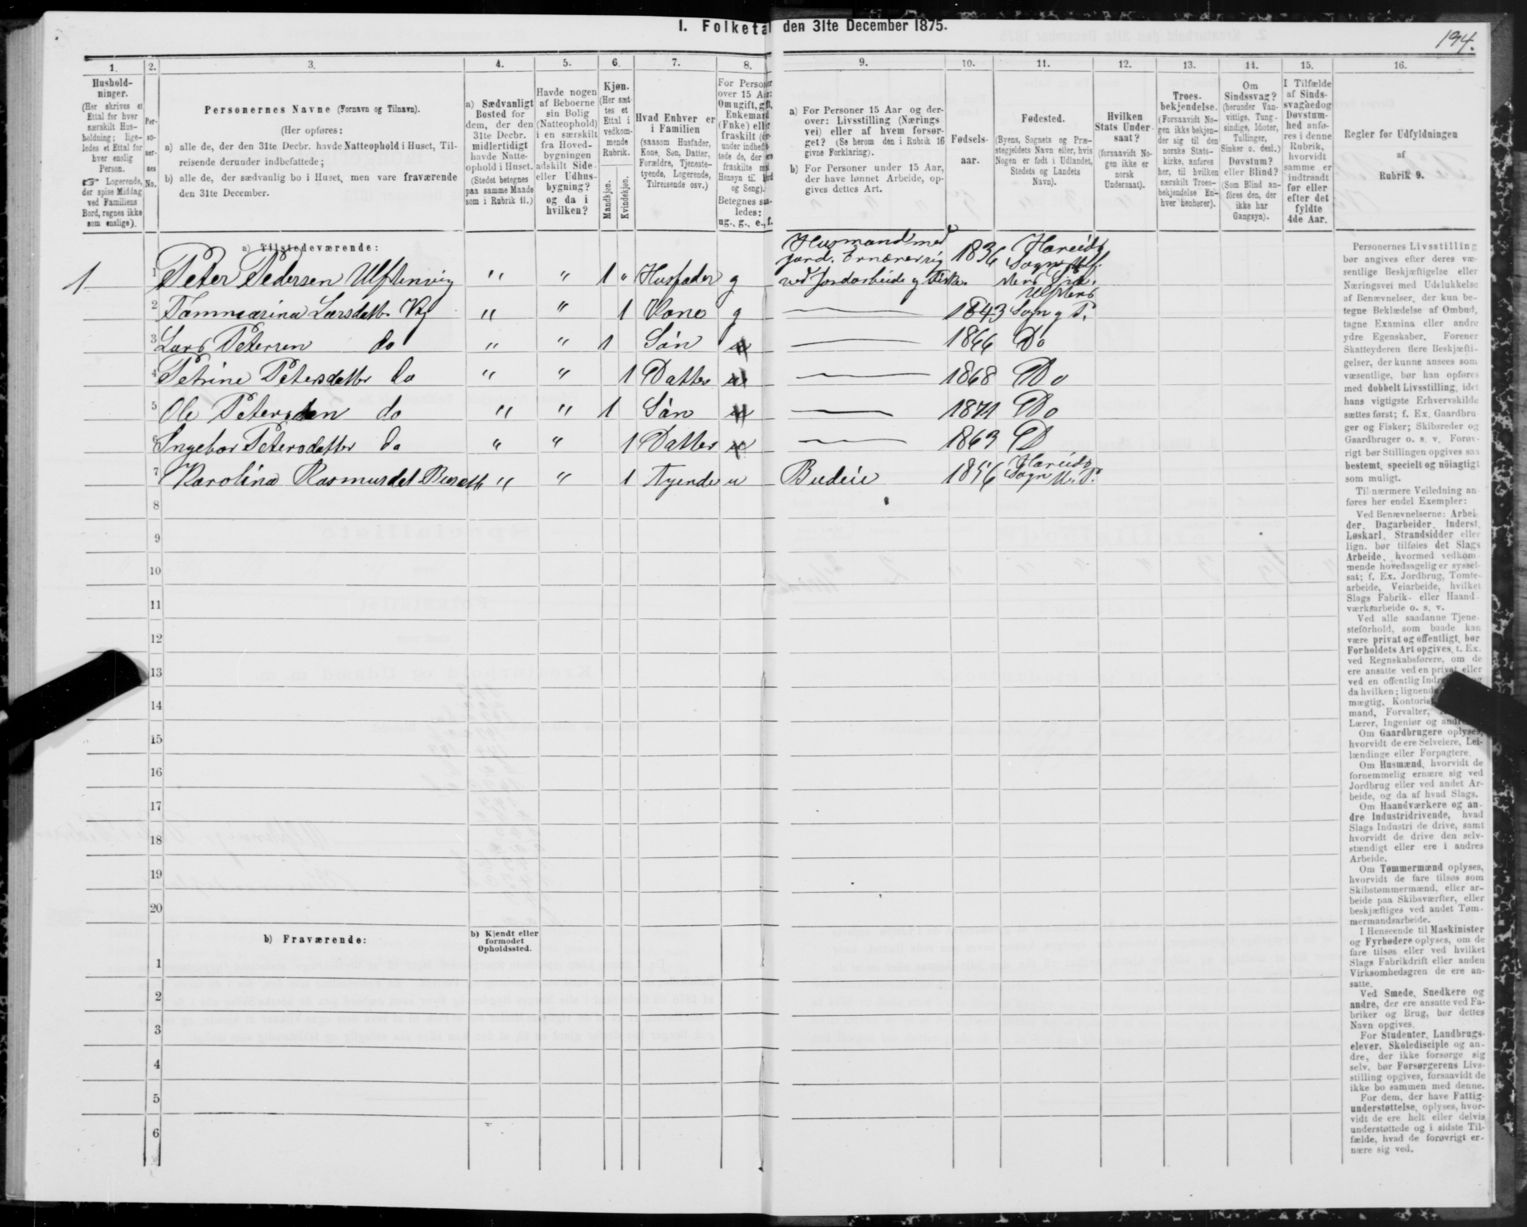 I. Folketal den 31te December 1875.
194.
1. 2. 3. 4. 5. 6. 7. 8. 9. 10. 11. 12. 13. 14. 15. 16.
Hushold-
ninger.
(Her skrives et
Ettal for hver
særskilt Hus-
holdning; lige-
ledes et Ettal for
hver enslig
Person.
☞ Logerende,
der spise Middag
ved Familiens
Bord, regnes ikke
som enslige).
Per-
so-
ner-
nes
No.
Personernes Navne (Fornavn og Tilnavn).
(Her opføres:
a) alle de, der den 31te Decbr. havde Natteophold i Huset, Til-
reisende derunder indbefattede;
b) alle de, der sædvanlig bo i Huset, men vare fraværende
den 31te December.
a) Sædvanligt
Bosted for
dem, der den
31te Decbr.
midlertidigt
havde Natte-
ophold i Huset.
(Stedet betegnes
paa samme Maade
som i Rubrik 11.)
Havde nogen
af Beboerne
sin Bolig
(Natteophold)
i en særskilt
fra Hoved-
bygningen
adskilt Side-
eller Udhus-
bygning?
og da i
hvilken?
Kjøn.
(Her sæt-
tes et
Ettal i
vedkom-
mende
Rubrik.
Mandkjøn.
Kvindekjøn.
Hvad Enhver er
i Familien
(saasom Husfader,
Kone, Søn, Datter,
Forældre, Tjeneste-
tyende, Logerende,
Tilreisende osv.)
For Personer
over 15 Aar:
Om ugift, gift,
Enkemand
(Enke) eller
fraskilt
og Seng).
Betegnes saa-
ledes:
ug., g., e., f.
a) For Personer 15 Aar og der-
over: Livsstilling (Nærings
vei) eller af hvem forsør-
get? (Se herom den i Rubrik 16
givne Forklaring).
b) For Personer under 15 Aar,
der have lønnet Arbeide, op-
gives dettes Art.
Fødsels-
aar.
Fødested.
(Byens, Sognets og Præ-
stegjeldets Navn eller, hvis
Nogen er født i Udlandet,
Stedets og Landets
Navn).
Hvilken
Stats Under-
saat?
(forsaavidt No-
gen ikke er
norsk
Undersaat).
Troes-
bekjendelse.
(Forsaavidt No-
gen ikke bekjen-
der sig til den
norske Stats-
kirke, anføres
her, til hvilken
særskilt Troes-
bekjendelse En-
hver henhører).
Om
Sindssvag?
(herunder Van-
vittige, Tung-
sindige, Idioter,
Tullinger,
Sinker o. desl.)
Døvstum?
eller Blind?
(Som Blind an-
føres den, der
ikke har
Gangsyn).
I Tilfælde
af Sinds-
svaghed og
Døvstum-
hed anfø-
res i denne
Rubrik,
hvorvidt
samme er
indtraadt
før eller
efter det
fyldte
4de Aar.
Regler før Udfyldningen
af
Rubrik 9.
a) Tilstedeværende:
1 1 Peter Pedersen Ulfstenvig " " 1 " Husfader g Husmand med jord. Ernærer sig ved Jordarbeide g Fiske. 1836 Hareids Sogn
2 Larsdatter " " 1 Kone g 1843 Sogn g P.
3 Lars Petersen do " " 1 Søn u 1866 Do
4 Petrine Petersdatter do " " 1 Datter u 1868 Do
5 Ole Petersen do " " 1 Søn u 1871 Do
6 Ingebor Petersdatter do " " 1 Datter u 1863 D
7 Karolina Rasmusdet " " 1 Tyende u Budeie 1856 Hareids Sogn
8
9
10
11
12
13
14
15
16
17
18
19
20
b) Fraværende:
b) Kjendt eller
formodet
Opholdssted.
1
2
3
4
5
6
Personernes Livsstilling
bør angives efter deres væ-
sentlige Beskjæftigelse eller
Næringsvei med Udelukkelse
af Benævnelser, der kun be-
tegne Beklædelse af Ombud,
tagne Examina eller andre
ydre Egenskaber. Forener
Skatteyderen flere Beskjæfti-
gelser, der kunne ansees som
væsentlige, bør han opføres
med dobbelt Livsstilling, idet
hans vigtigste Erhvervskilde
sættes først; f. Ex. Gaardbru-
ger og Fisker; Skibsreder og
Gaardbruger o. s. v. Forøv-
rigt bør Stillingen opgives saa
bestemt, specielt og nöiagtigt
som muligt.
Til nærmere Veiledning an-
føres her endel Exempler:
Ved Benævnelserne: Arbei-
der, Dagarbeider, Inderst,
Løskarl, Strandsidder eller
lign. bør tilføies det Slags
Arbeide, hvormed vedkom-
mende hovedsagelig er syssel-
sat; f. Ex. Jordbrug, Tomte-
arbeide, Veiarbeide, hvilket
Slags Fabrik- eller Haand-
værksarbeide o. s. v.
Ved alle saadanne Tjene-
steforhold, som baade kan
være privat og offentligt, bør
Forholdets Art opgives, t. Ex.
ved Regnskabsførere, om de
ere ansatte ved en privat eller
ved en offentlig
da hvilken;
mægtig,
mand, Forvalter,
Lærer, Ingeniør og
Om Gaardbrugere oplyses,
hvorvidt de ere Selveiere, Lei-
lændinge eller Forpagtere.
Om Husmænd, hvorvidt de
fornemmelig ernære sig ved
Jordbrug eller ved andet Ar-
beide, og da af hvad Slags.
Om Haandværkere og an-
dre Industridrivende, hvad
Slags Industri de drive, samt
hvorvidt de drive den selv-
stændigt eller ere i andres
Arbeide.
Om Tømmermænd oplyses,
hvorvidt de fare tilsøs som
Skibstømmermænd, eller ar-
beide paa Skibsværfter, eller
beskjæftiges ved andet Tøm-
mermandsarbeide.
I Henseende til Maskinister
og Fyrbødere oplyses, om de
fare tilsøs eller ved hvilket
Slags Fabrikdrift eller anden
Virksomhedsgren de ere an-
satte.
Ved Smede, Snedkere og
andre, der ere ansatte ved Fa-
briker og Brug, bør dettes
Navn opgives.
For Studenter, Landbrugs-
elever, Skoledisciple og an-
dre, der ikke forsørge sig
selv, bør Forsørgerens Livs-
stilling opgives, forsaavidt de
ikke bo sammen med denne.
For dem, der have Fattig-
understøttelse, oplyses, hvor-
vidt de ere helt eller delvis
understøttede og i sidste Til-
fælde, hvad de forøvrigt er-
nære sig ved.